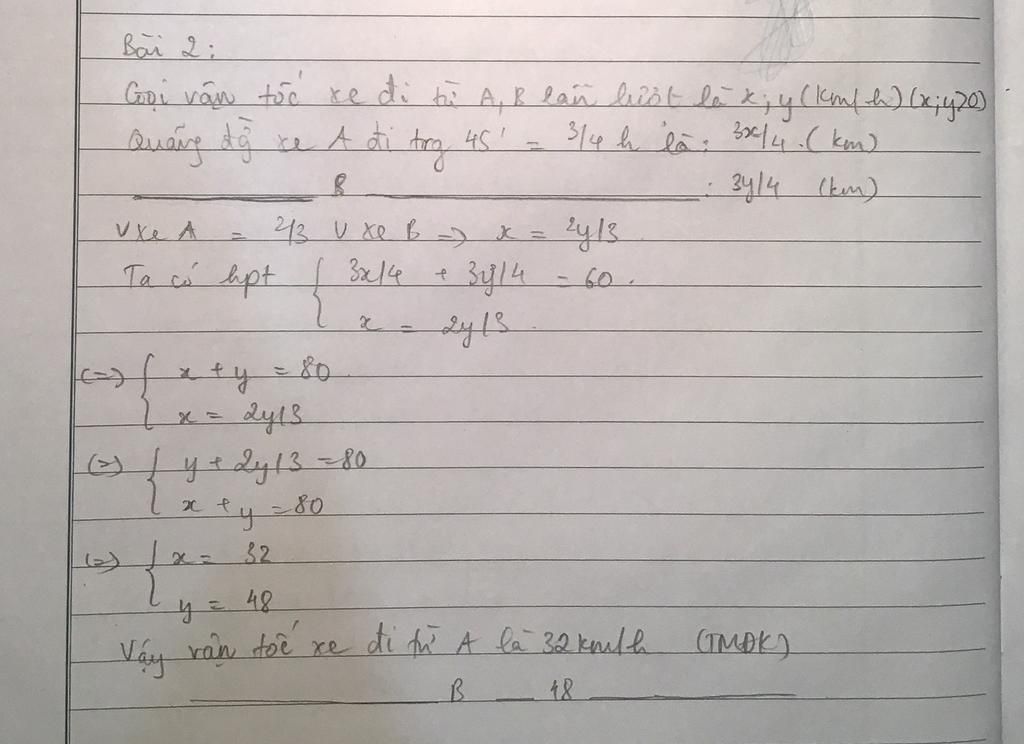 Bài 2:
Gọi vận tốc xe đi từ A, B lần lượt là x; y (km/h) (x; y>0)
Quãng đg xe A đi trg 45' = 3/4 h là: 3x/4. (km)
B : 3y/4 (km)
V xe A = 2/3 V xe B => x = 2y/3
Ta có hpt { 3x/4 + 3y/4 = 60.
x = 2y/3.
(=>) { x + y = 80.
x = 2y/3
(=) { y + 2y/3 = 80
x + y = 80
(=) { x = 32
y = 48
Vậy vận tốc xe đi từ A là 32 km/h (TMĐK)
B 48